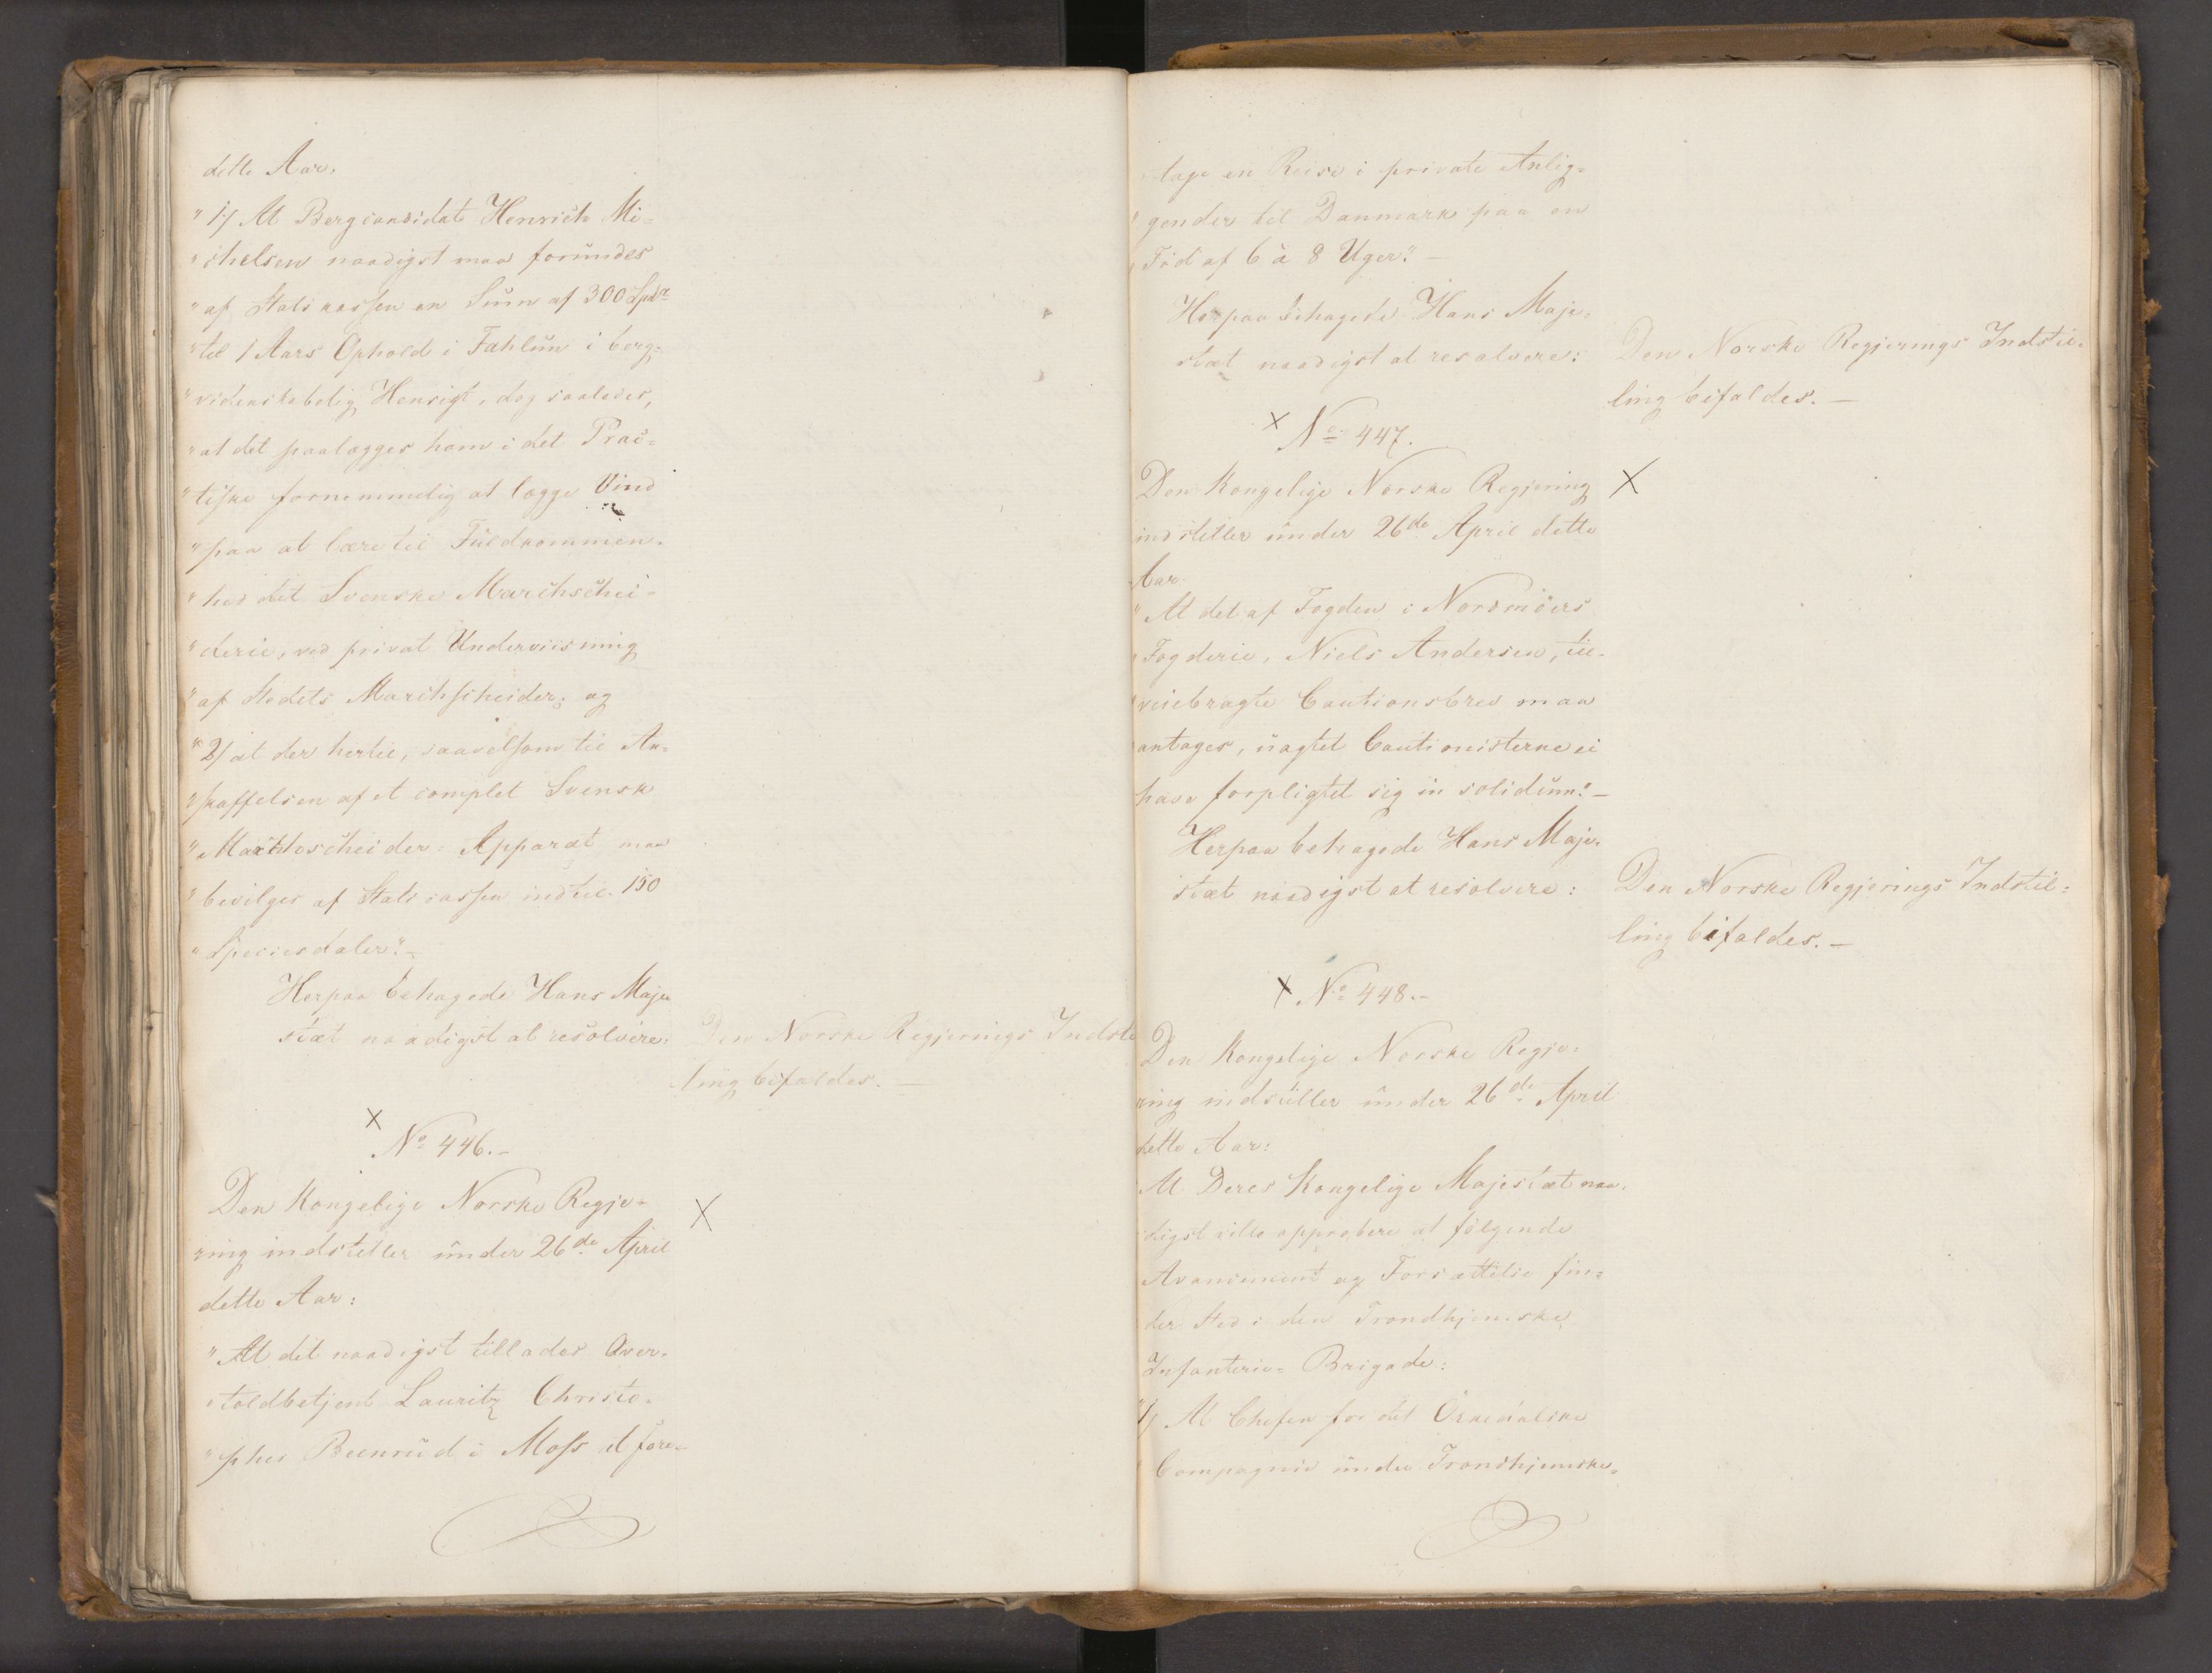 dette Aar:
" 1) At Bergcandidat Henrich Mi-
" chelsen naadigst maa forundes
" af Statskassen en Sum af 300 Spdr
" til 1 Aars Ophold i Fahlun i berg-
" videnskabelig Hensigt, dog saaledes,
" at det paalægges ham i det Prac-
" tiske fornemmelig at lægge Vind
" paa at lære til Fuldkommen-
" hed det Svenske Marchschei-
" derie, ved privat Underviisning
" af Stedets Marchscheider; og
" 2) at der hertil, saavelsom til An-
" skaffelsen af et complet Svensk
" Marchscheider-Apparat maa
" bevilges af Statscassen indtil 150
" Speciesdaler". -
Herpaa behagede Hans Maje-
stæt naadigst at resolvere:
Den Norske Regjerings Indstil
ling bifaldes. -
x
No 446. -
Den Kongelige Norske Regje-
ring indstiller under 26de April
dette Aar:
x
" At det naadigst tillades Over-
" toldbetjent Lauritz Christo-
" pher Beenrud i Moss at fore-
tage en Reise i private Anlig-
" gender til Danmark paa en
Tid af 6 à 8 Uger". -
Herpaa behagede Hans Maje-
stæt naadigst at resolvere:
Den Norske Regjerings Indstil-
ling bifaldes. -
x No 447.
Den Kongelige Norske Regjering
indstiller under 26de April dette
Aar
x
" At det af Fogden i Nordmöers
" Fogderie, Niels Andersen, til-
" veiebragte Cautionsbrev maa
antages, uagtet Cautionisterne ei
have forpligtet sig in solidum". -
Herpaa behagede Hans Maje-
stæt naadigst at resolvere:
Den Norske Regjerings Indstil-
ling bifaldes. -
x No 448. -
Den Kongelige Norske Regje-
ring indstiller under 26de April
dette Aar:
At Deres Kongelige Majestæt naa-
digst ville approbere at følgende
Avancement og Forsættelse fin-
der Sted i den Trondhjemske
Infanterie-Brigade:
" 1) At Chefen for det Örkedalske
Compagnie under Trondhjemske